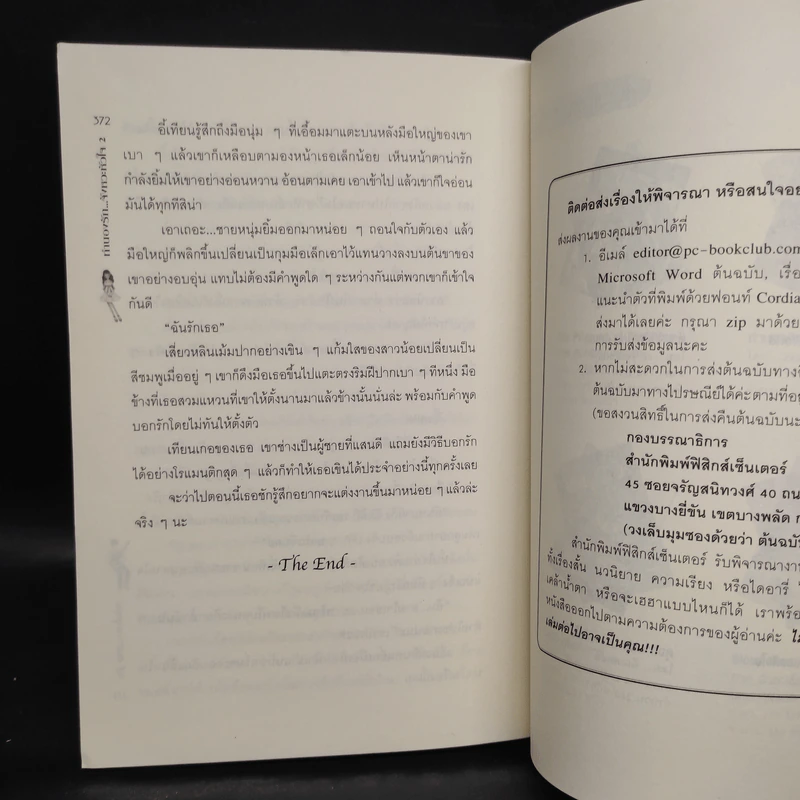 372
ทำนองรัก...จังหวะหัวใจ 2
อี้เทียนรู้สึกถึงมือนุ่ม ๆ ที่เอื้อมมาแตะบนหลังมือใหญ่ของเขา
เบา ๆ แล้วเขาก็เหลือบตามองหน้าเธอเล็กน้อย เห็นหน้าตาน่ารัก
กำลังยิ้มให้เขาอย่างอ่อนหวาน อ้อนตามเคย เอาเข้าไป แล้วเขาก็ใจอ่อน
มันได้ทุกทีสิน่า
เอาเถอะ...ชายหนุ่มยิ้มออกมาหน่อย ๆ ถอนใจกับตัวเอง แล้ว
มือใหญ่ก็พลิกขึ้นเปลี่ยนเป็นกุมมือเล็กเอาไว้แทนวางลงบนต้นขาของ
เขาอย่างอบอุ่น แทบไม่ต้องมีคำพูดใด ๆ ระหว่างกันแต่พวกเขาก็เข้าใจ
กันดี
“ฉันรักเธอ”
เสี่ยวหลินเม้มปากอย่างเขิน ๆ แก้มใสของสาวน้อยเปลี่ยนเป็น
สีชมพูเมื่ออยู่ ๆ เขาก็ดึงมือเธอขึ้นไปแตะตรงริมฝีปากเบา ๆ ทีหนึ่ง มือ
ข้างที่เธอสวมแหวนที่เขาให้ตั้งนานมาแล้วข้างนั้นนั่นล่ะ พร้อมกับคำพูด
บอกรักโดยไม่ทันให้ตั้งตัว
เทียนเกอของเธอ เขาช่างเป็นผู้ชายที่แสนดี แถมยังมีวิธีบอกรัก
ได้อย่างโรแมนติกสุด ๆ แล้วก็ทำให้เธอเขินได้ประจำอย่างนี้ทุกครั้งเลย
จะว่าไปตอนนี้เธอชักรู้สึกอยากจะแต่งงานขึ้นมาหน่อย ๆ แล้วล่ะ
จริง ๆ นะ
- The End -
ติดต่อส่งเรื่องให้พิจารณา หรือสนใจอย
ส่งผลงานของคุณเข้ามาได้ที่
1. อีเมล์ editor@pc-bookclub.com
Microsoft Word ต้นฉบับ, เรื่อ
แนะนำตัวที่พิมพ์ด้วยฟอนท์ Cordia
ส่งมาได้เลยค่ะ กรุณา zip มาด้วย
การรับส่งข้อมูลนะคะ
2. หากไม่สะดวกในการส่งต้นฉบับทางอี
ต้นฉบับมาทางไปรษณีย์ได้ค่ะตามที่อย
(ขอสงวนสิทธิ์ในการส่งคืนต้นฉบับนะ
กองบรรณาธิการ
สำนักพิมพ์ฟิสิกส์เซ็นเตอร์
45 ซอยจรัญสนิทวงศ์ 40 ถน
แขวงบางยี่ขัน เขตบางพลัด ก
(วงเล็บมุมซองด้วยว่า ต้นฉบั
สำนักพิมพ์ฟิสิกส์เซ็นเตอร์ รับพิจารณางาน
ทั้งเรื่องสั้น นวนิยาย ความเรียง หรือไดอารี่
เคล้าน้ำตา หรือจะเฮฮาแบบไหนก็ได้ เราพร้อ
หนังสือออกไปตามความต้องการของผู้อ่านค่ะ ไม
เล่มต่อไปอาจเป็นคุณ!!!